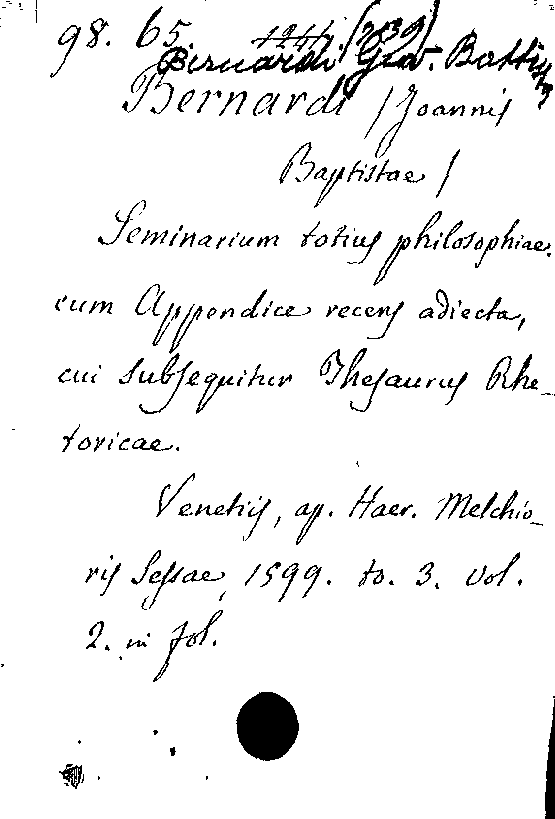 98. 65
Bernardi Giov. Battista
Bernardi / Joannis
Baptistae /
Seminarium totius philosophiae.
cum Appendice recens adiecta,
cui subsequitur Thesaurus Rhe-
toricae.
Venetiis, ap. Haer. Melchio-
ris Sessae, 1599. to. 3. vol.
2. in fol.